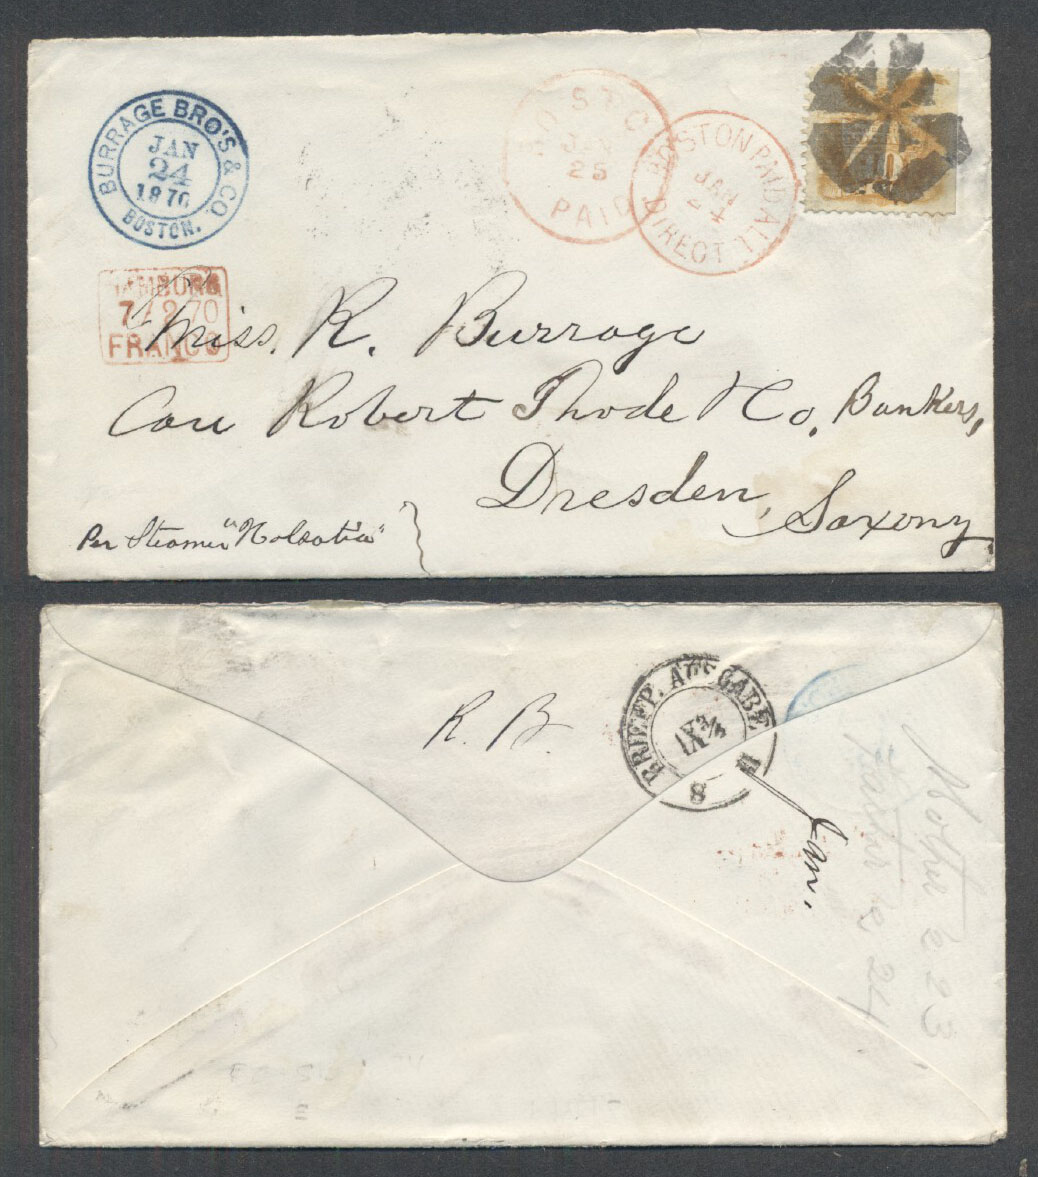 BURRAGE BRO'S & CO.
JAN
24
1870
BOSTON.
HAMBURG
7 / 2 70
FRANCO
25
PAID
BOSTON PAID ALL
JAN
24
DIRECT
10
Miss. R. Burrage
Care Robert Thode & Co, Bankers,
Dresden, Saxony.
Per Steamer "Holsatia"
R. B.
BRIEFP. AUSGABE
8
Mother 23
24